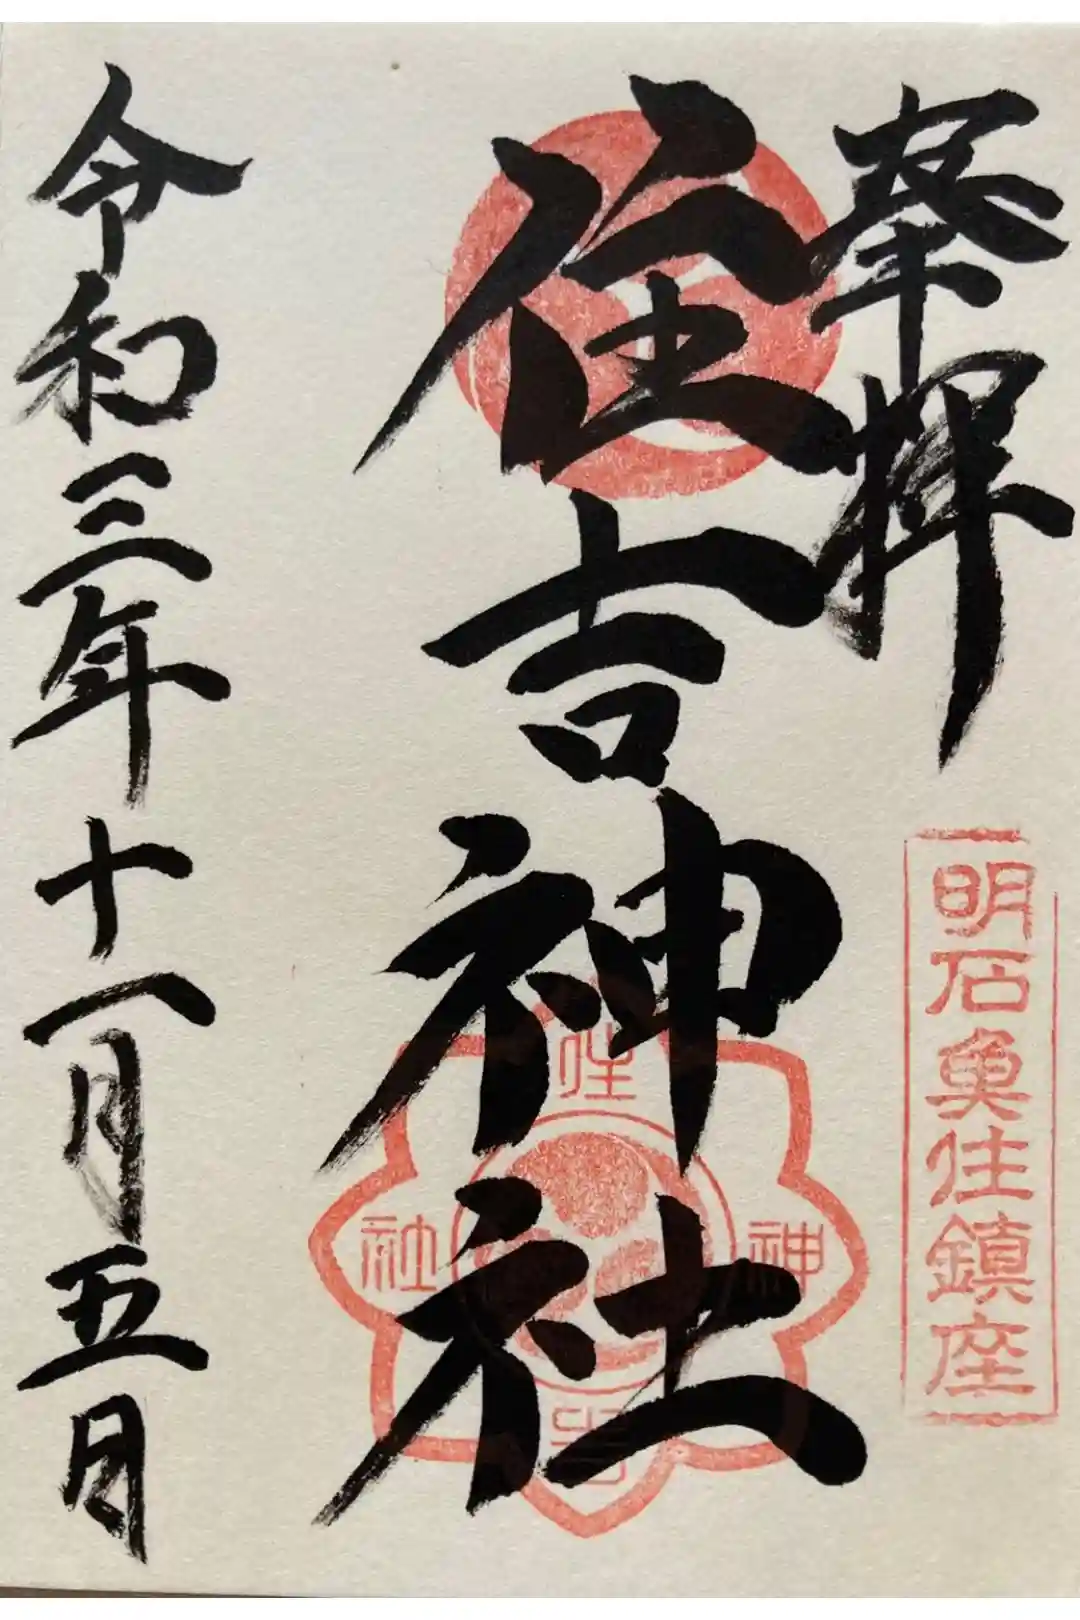 奉拝
明石魚住鎮座
住吉神社
住
吉
神
社
令和三年十一月五日